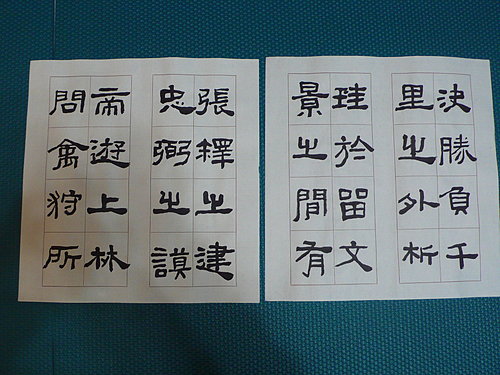 決勝負千
里之外析
珪於留文
景之閒有
張釋之建
忠弼之謨
帝遊上林
問禽狩所